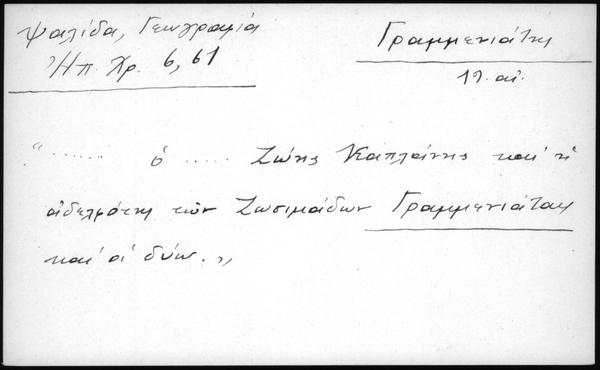 Ψαλίδα, Γεωγραφία
Ἠπ. Χρ. 6, 61
Γραμμενιάτης
19. αἰ.
"...... ὁ ..... Ζώης Καπλάνης καὶ ἡ
ἀδελφότης τῶν Ζωσιμάδων Γραμμενιάται
καὶ οἱ δύω."